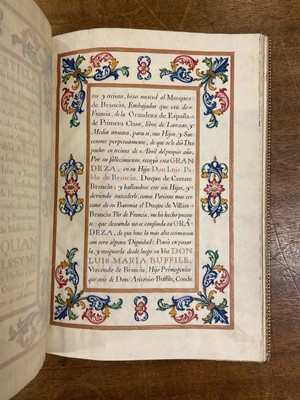 te y treinta, hizo merced al Marques
de Brancàs, Embajador que era de
Francia, de la Grandeza de España
de Primera Clase, libre de Lanzas, y
Media annata, para si, sus Hijos, y Suc-
cesores perpetuamente, de que se le diò Des-
pacho en treinta de Abril del propio año.
Por su fallecimiento, recayò esta GRAN
DEZA, en su Hijo Don Luis Pa-
blo de Brancàs, Duque de Cereste
Brancàs; y hallandose este sin Hijos, y
deviendo succederle, como Pariente mas cer-
cano de su Baronia el Duque de Villàrs
Brancàs Par de Francia, me ha hecho presen-
te: que deseando no se confunda su GRA
DEZA, de que hace la mas alta estimacion
con otra alguna Dignidad: Penso en pasar-
la, y asegurarla desde luego en Vos DON
LUIS MARIA BUFFILE,
Vizconde de Brancàs, Hijo Primogenito
que sois de Don Antonio Buffile, Conde